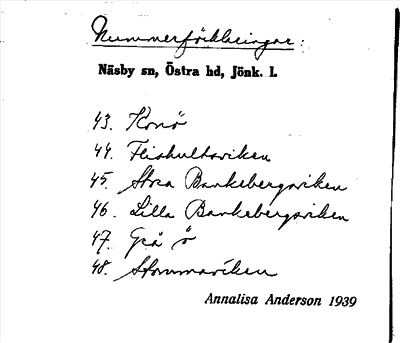 Nummerförklaringar:
Näsby sn, Östra hd, Jönk. l.
43. Kroö
44. Flishultsviken
45. Stora Bankebergsviken
46. Lilla Bankebergsviken
47. Grå ö
48. Stommaviken
Annalisa Anderson 1939